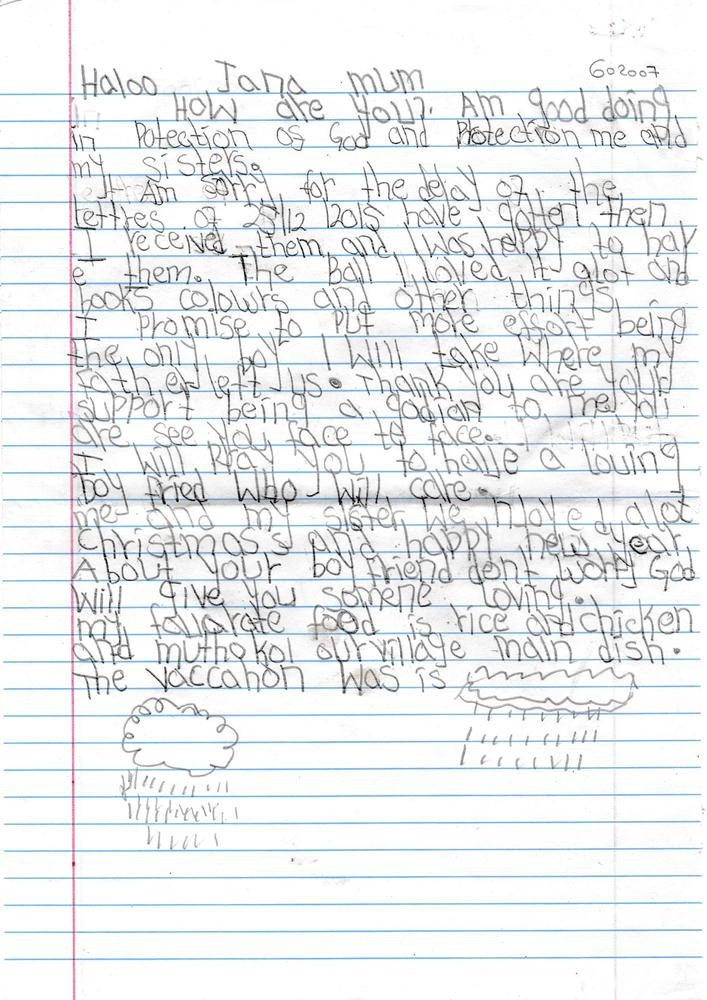 602007
Haloo Jana mum
How are you?. Am good doing
in Potection of God and Protection me and
my sisters.
Am sorry for the delay of the
lettres of 25/12/2015 have gotten then
I received them and I was happy to hav
e them. The Ball I loved it alot and
books colours and other things
I Promise to put more effort being
the only boy I will take where my
father left us. Thank you are your
support being a gadian to me you
are see you face to face.
I will Pray you to have a loving
boy fried who will care.
me and my sister we njoved alot
Christmass and happy new year
About your boy friend dont worry God
will give you somene loving.
my favarate food is rice and chicken
and muthokoi our village main dish.
The vaccation was is